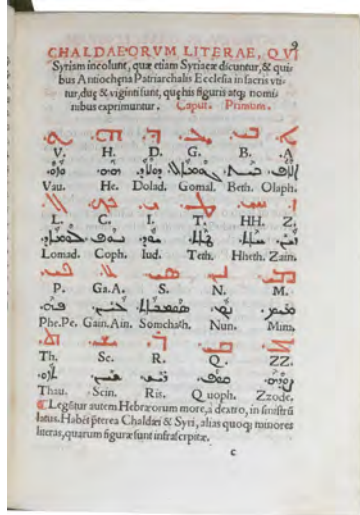 9
CHALDAEORVM LITERAE, QVI
Syrism incolunt, quæ etiam Syriacæ dicuntur, & qui-
bus Antiochena Patriarchalis Ecclesia in sacris vti-
tur, duę & viginti sunt, quę his figuris atq; nomi-
nibus exprimuntur. Caput. Primum.
ܐ ܒ ܓ ܕ ܗ ܘ
V. H. D. G. B. A.
Vau. He. Dolad. Gomal. Beth. Olaph.
ܙ ܚ ܛ ܝ ܟ ܠ
L. C. I. T. HH. Z.
Lomad. Coph. Iud. Teth. Hheth. Zain.
ܡ ܢ ܣ ܥ ܦ
P. Ga.A. S. N. M.
Phe.Pe. Gain.Ain. Somchath. Nun. Mim.
ܨ ܩ ܪ ܫ ܬ
Th. Sc. R. Q. ZZ.
Thau. Scin. Ris. Quoph. Zzode.
Legūtur autem Hebræorum more, a dextro, in sinistrū
latus. Habēt pręterea Chaldæi & Syri, alias quoq; minores
literas, quarum figuræ sunt infrascriptæ.
c